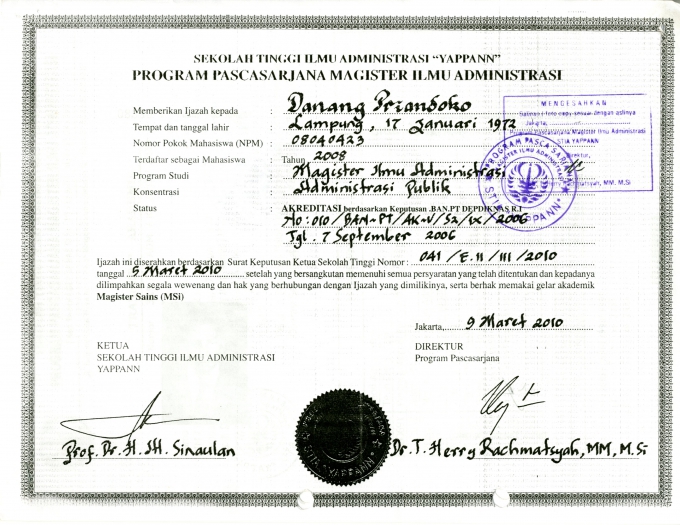 SEKOLAH TINGGI ILMU ADMINISTRASI "YAPPANN"
PROGRAM PASCASARJANA MAGISTER ILMU ADMINISTRASI
Memberikan Ijazah kepada : Danang Priandoko
Tempat dan tanggal lahir : Lampung, 17 Januari 1972
Nomor Pokok Mahasiswa (NPM) : 08040423
Terdaftar sebagai Mahasiswa : Tahun 2008
Program Studi : Magister Ilmu Administrasi
Konsentrasi : Administrasi Publik
Status : AKREDITASI berdasarkan Keputusan .BAN.PT DEPDIKNAS R.I
No: 010/BAN-PT/AK-V/S2/IX/2006
Tgl. 7 September 2006
MENGESAHKAN
Jakarta,
Program Pascasarjana Magister Ilmu Administrasi
STIA YAPPANN
Direktur,
MM, M.Si
PROGRAM PASCA SARJANA
MAGISTER ILMU ADMINISTRASI
STIA YAPPANN
Ijazah ini diserahkan berdasarkan Surat Keputusan Ketua Sekolah Tinggi Nomor : 041 / E.II / III / 2010
tanggal 5 Maret 2010 setelah yang bersangkutan memenuhi semua persyaratan yang telah ditentukan dan kepadanya
dilimpahkan segala wewenang dan hak yang berhubungan dengan Ijazah yang dimilikinya, serta berhak memakai gelar akademik
Magister Sains (MSi)
Jakarta, 9 Maret 2010
KETUA
SEKOLAH TINGGI ILMU ADMINISTRASI
YAPPANN
DIREKTUR
Program Pascasarjana
Prof. Dr. H. JH. Sinaulan
Dr. T. Herry Rachmatsyah, MM, M.Si
STIA YAPPANN